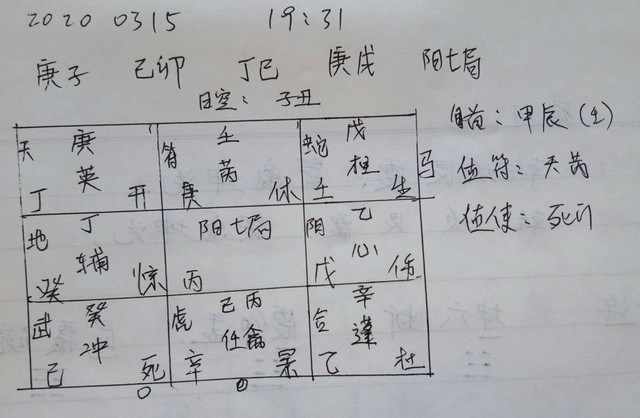 2020 0315 19:31
庚子 己卯 丁巳 庚戌 阳七局
日空：子丑
旬首：甲辰（壬）
值符：天芮
值使：死门
天 庚 英 丁 开
符 壬 芮 庚 休
蛇 戊 柱 壬 生 马
地 丁 辅 癸 惊
阳七局 丙
阴 乙 心 戊 伤
武 癸 冲 己 死 〇
虎 己丙 任禽 辛 景 〇
合 辛 蓬 乙 杜